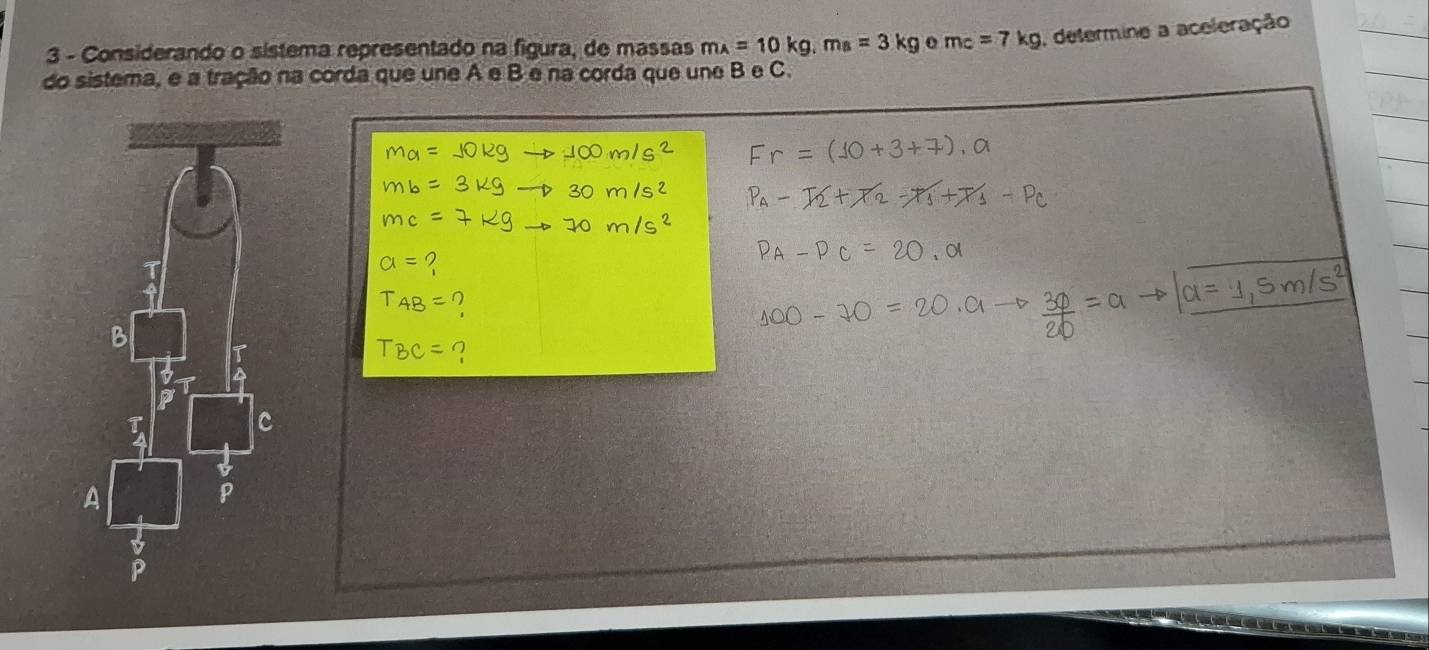 3 - Considerando o sistema representado na figura, de massas mA = 10 kg, mB = 3 kg e mC = 7 kg, determine a aceleração
do sistema, e a tração na corda que une A e B e na corda que une B e C.
ma = 10kg → 100 m/s²
mb = 3kg → 30 m/s²
mc = 7kg → 70 m/s²
a = ?
TAB = ?
TBC = ?
Fr = (10+3+7).a
PA - T2 + T2 - T1 + T1 - PC
PA - PC = 20.a
100 - 70 = 20.a → 30/20 = a → a = 1,5 m/s²
T
B
T
P
T
T
C
A
P
P